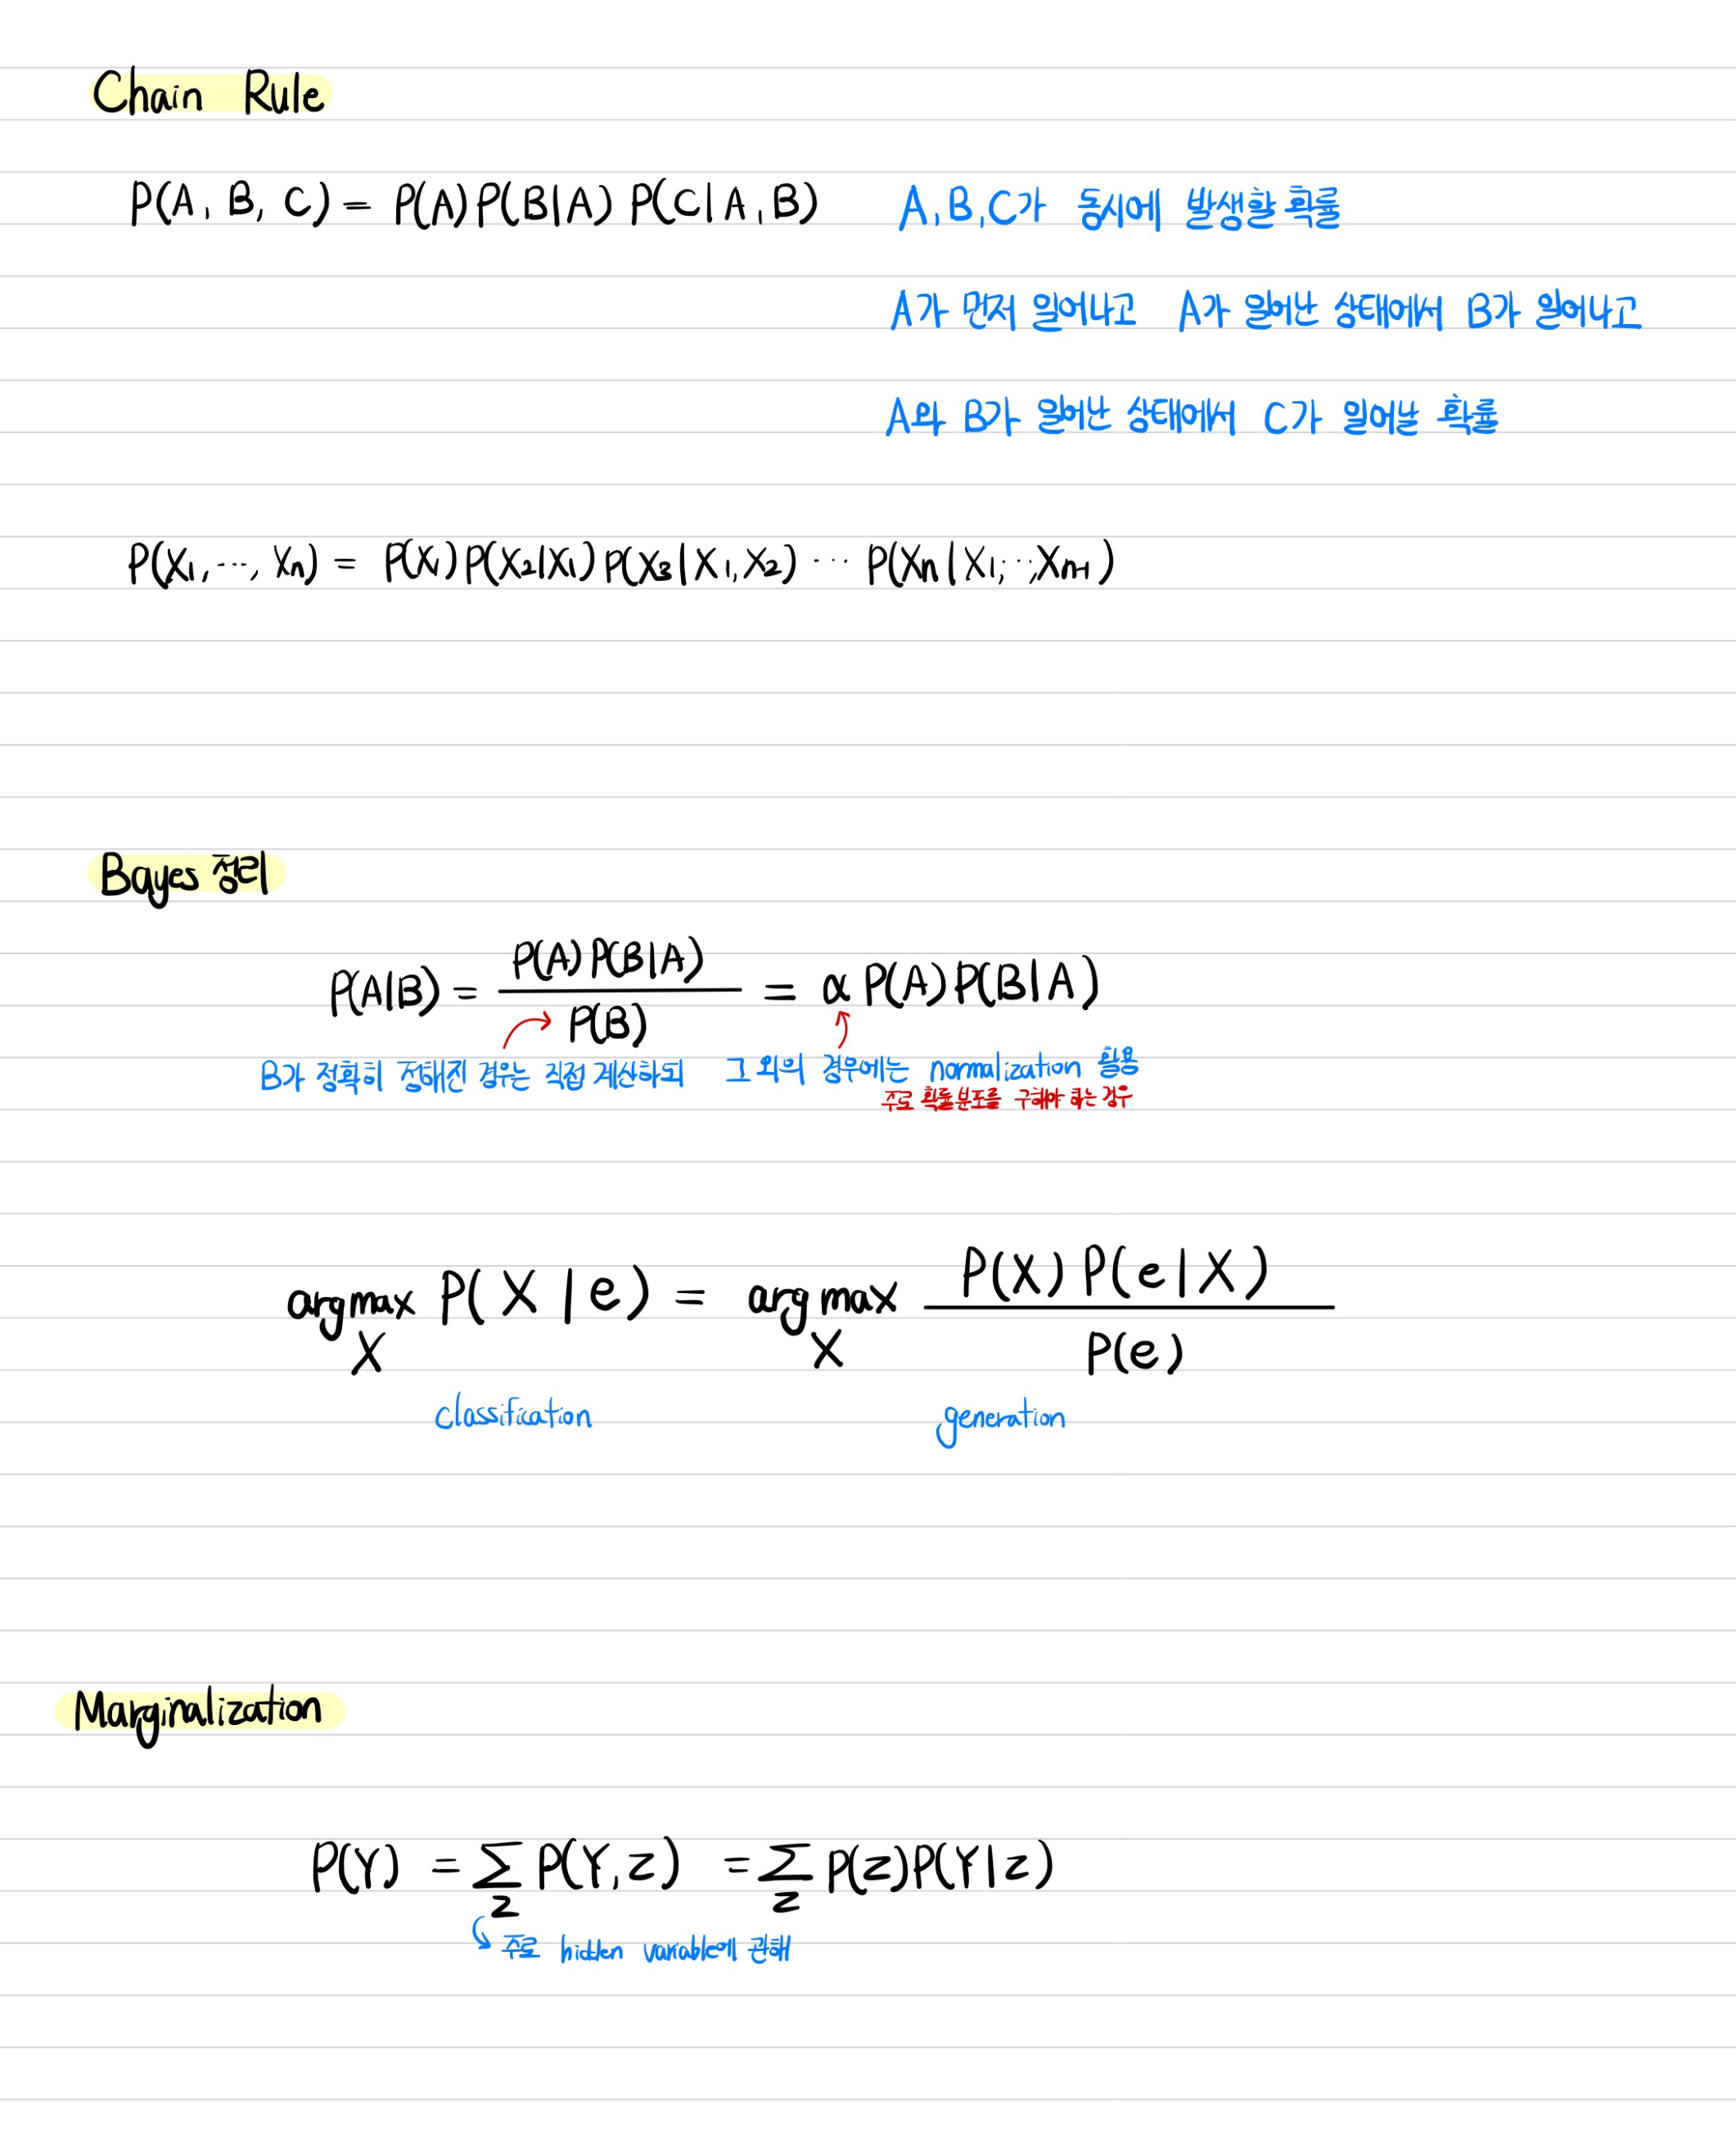 Chain Rule
P(A, B, C) = P(A) P(B|A) P(C|A, B) A, B, C가 동시에 발생할 확률
A가 먼저 일어나고 A가 일어난 상태에서 B가 일어나고
A와 B가 일어난 상태에서 C가 일어날 확률
P(X₁, ..., Xn) = P(X₁) P(X₂|X₁) P(X₃|X₁, X₂) ... P(Xn|X₁, ..., Xn-1)
Bayes 정리
P(A|B) = P(A) P(B|A) / P(B) = α P(A) P(B|A)
B가 정확히 정해진 경우는 직접 계산하되 그 외의 경우에는 normalization 활용
주로 확률분포를 구해야 하는 경우
argmax X P(X|e) = argmax X P(X) P(e|X) / P(e)
classification generation
Marginalization
P(Y) = Σz P(Y, z) = Σz P(z) P(Y|z)
주로 hidden variable에 관해